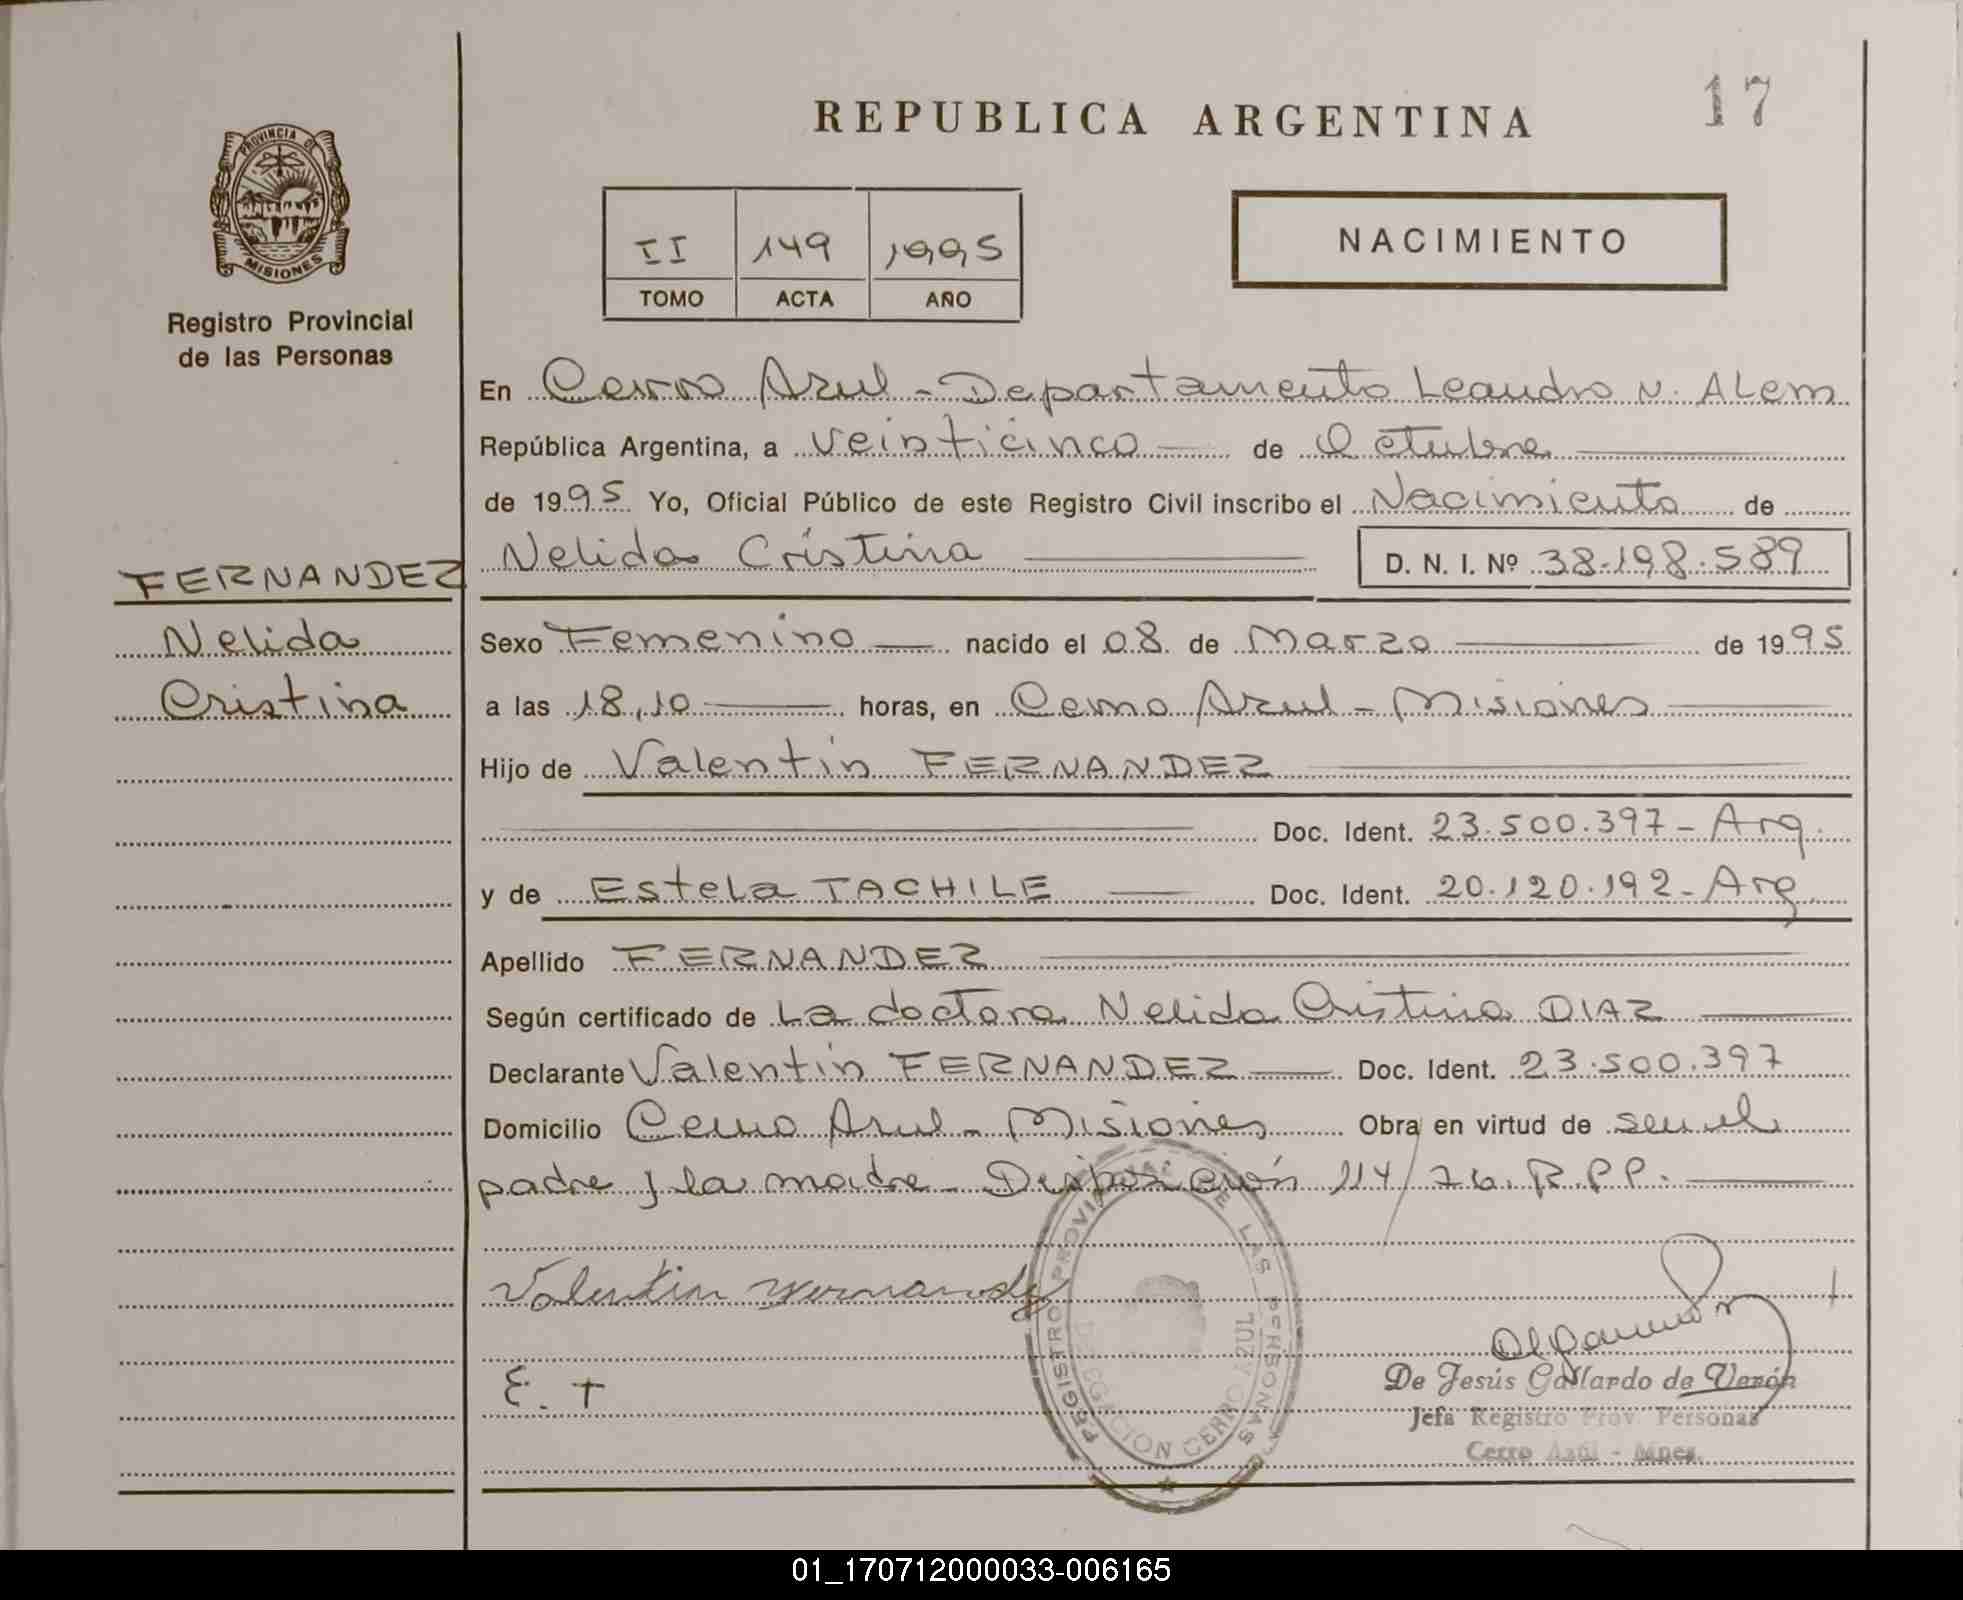 17
REPUBLICA ARGENTINA
PROVINCIA DE
MISIONES
Registro Provincial
de las Personas
NACIMIENTO
II 149 1995
TOMO ACTA AÑO
En Cerro Azul - Departamento Leandro N. Alem
República Argentina, a veinticinco de Octubre
de 1995 Yo, Oficial Público de este Registro Civil inscribo el Nacimiento de
Nelida Cristina D. N. I. Nº 38.198.589
FERNANDEZ
Nelida
Cristina
Sexo Femenino nacido el 08 de Marzo de 1995
a las 18,10 horas, en Cerro Azul - Misiones
Hijo de Valentin FERNANDEZ
Doc. Ident. 23.500.397 - Arg.
y de Estela TACHILE Doc. Ident. 20.120.192 - Arg.
Apellido FERNANDEZ
Según certificado de La doctora Nelida Cristina DIAZ
Declarante Valentin FERNANDEZ Doc. Ident. 23.500.397
Domicilio Cerro Azul - Misiones Obra en virtud de ser el
padre y la madre - Disposición 114/76. R.P.P.
Valentin Fernandez
E. T
REGISTRO PROVINCIAL DE LAS PERSONAS
DELEGACION CERRO AZUL
De Jesús Gallardo de Verón
Jefa Registro Prov. Personas
Cerro Azul - Mnes.
01_170712000033-006165